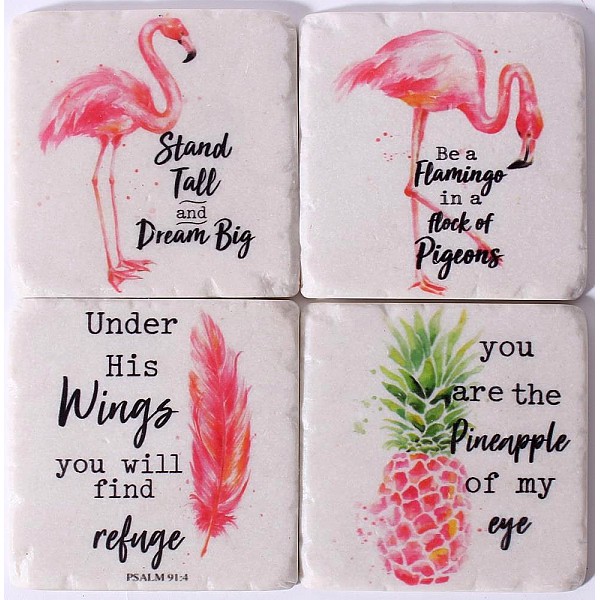 Stand
Tall
and
Dream Big
Be a
Flamingo
in a
flock of
Pigeons
Under
His
Wings
you will
find
refuge
PSALM 91:4
you
are the
Pineapple
of my
eye